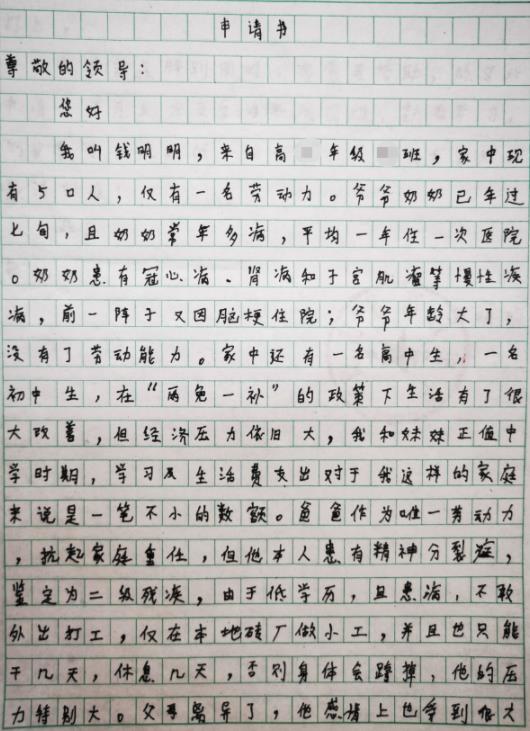 申请书
尊敬的领导：
您好
我叫钱明明，来自高 年级 班，家中现
有5口人，仅有一名劳动力。爷爷奶奶已年过
七旬，且奶奶常年多病，平均一年住一次医院
。奶奶患有冠心病、肾病和子宫肌瘤等慢性疾
病，前一阵子又因脑梗住院；爷爷年龄大了，
没有了劳动能力。家中还有一名高中生，一名
初中生，在“两免一补”的政策下生活有了很
大改善，但经济压力依旧大，我和妹妹正值中
学时期，学习及生活费支出对于我这样的家庭
来说是一笔不小的数额。爸爸作为唯一劳动力
，抗起家庭重任，但他本人患有精神分裂症，
鉴定为二级残疾，由于低学历，且患病，不敢
外出打工，仅在本地砖厂做小工，并且也只能
干几天，休息几天，否则身体会蹲掉，他的压
力特别大。父母离异了，他感情上也受到很大